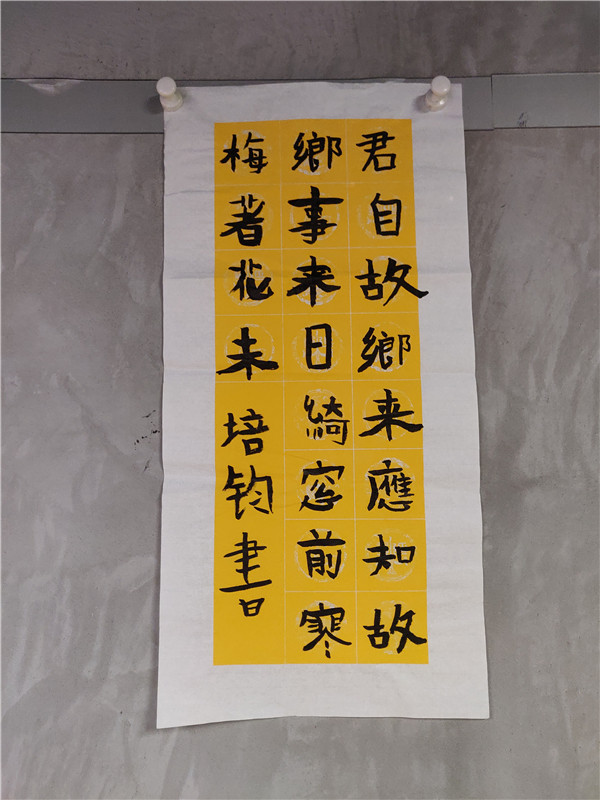 君自故鄉来應知故
鄉事来日綺窓前寒
梅著花未
培钧書